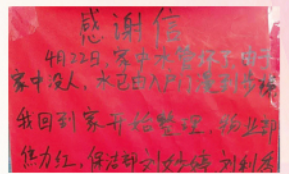 感谢信
4月22日,家中水管坏了,由于
家中没人,水已由入户门漫到步梯
我回到家开始整理,物业部
焦力红,保洁部刘 婷 刘利